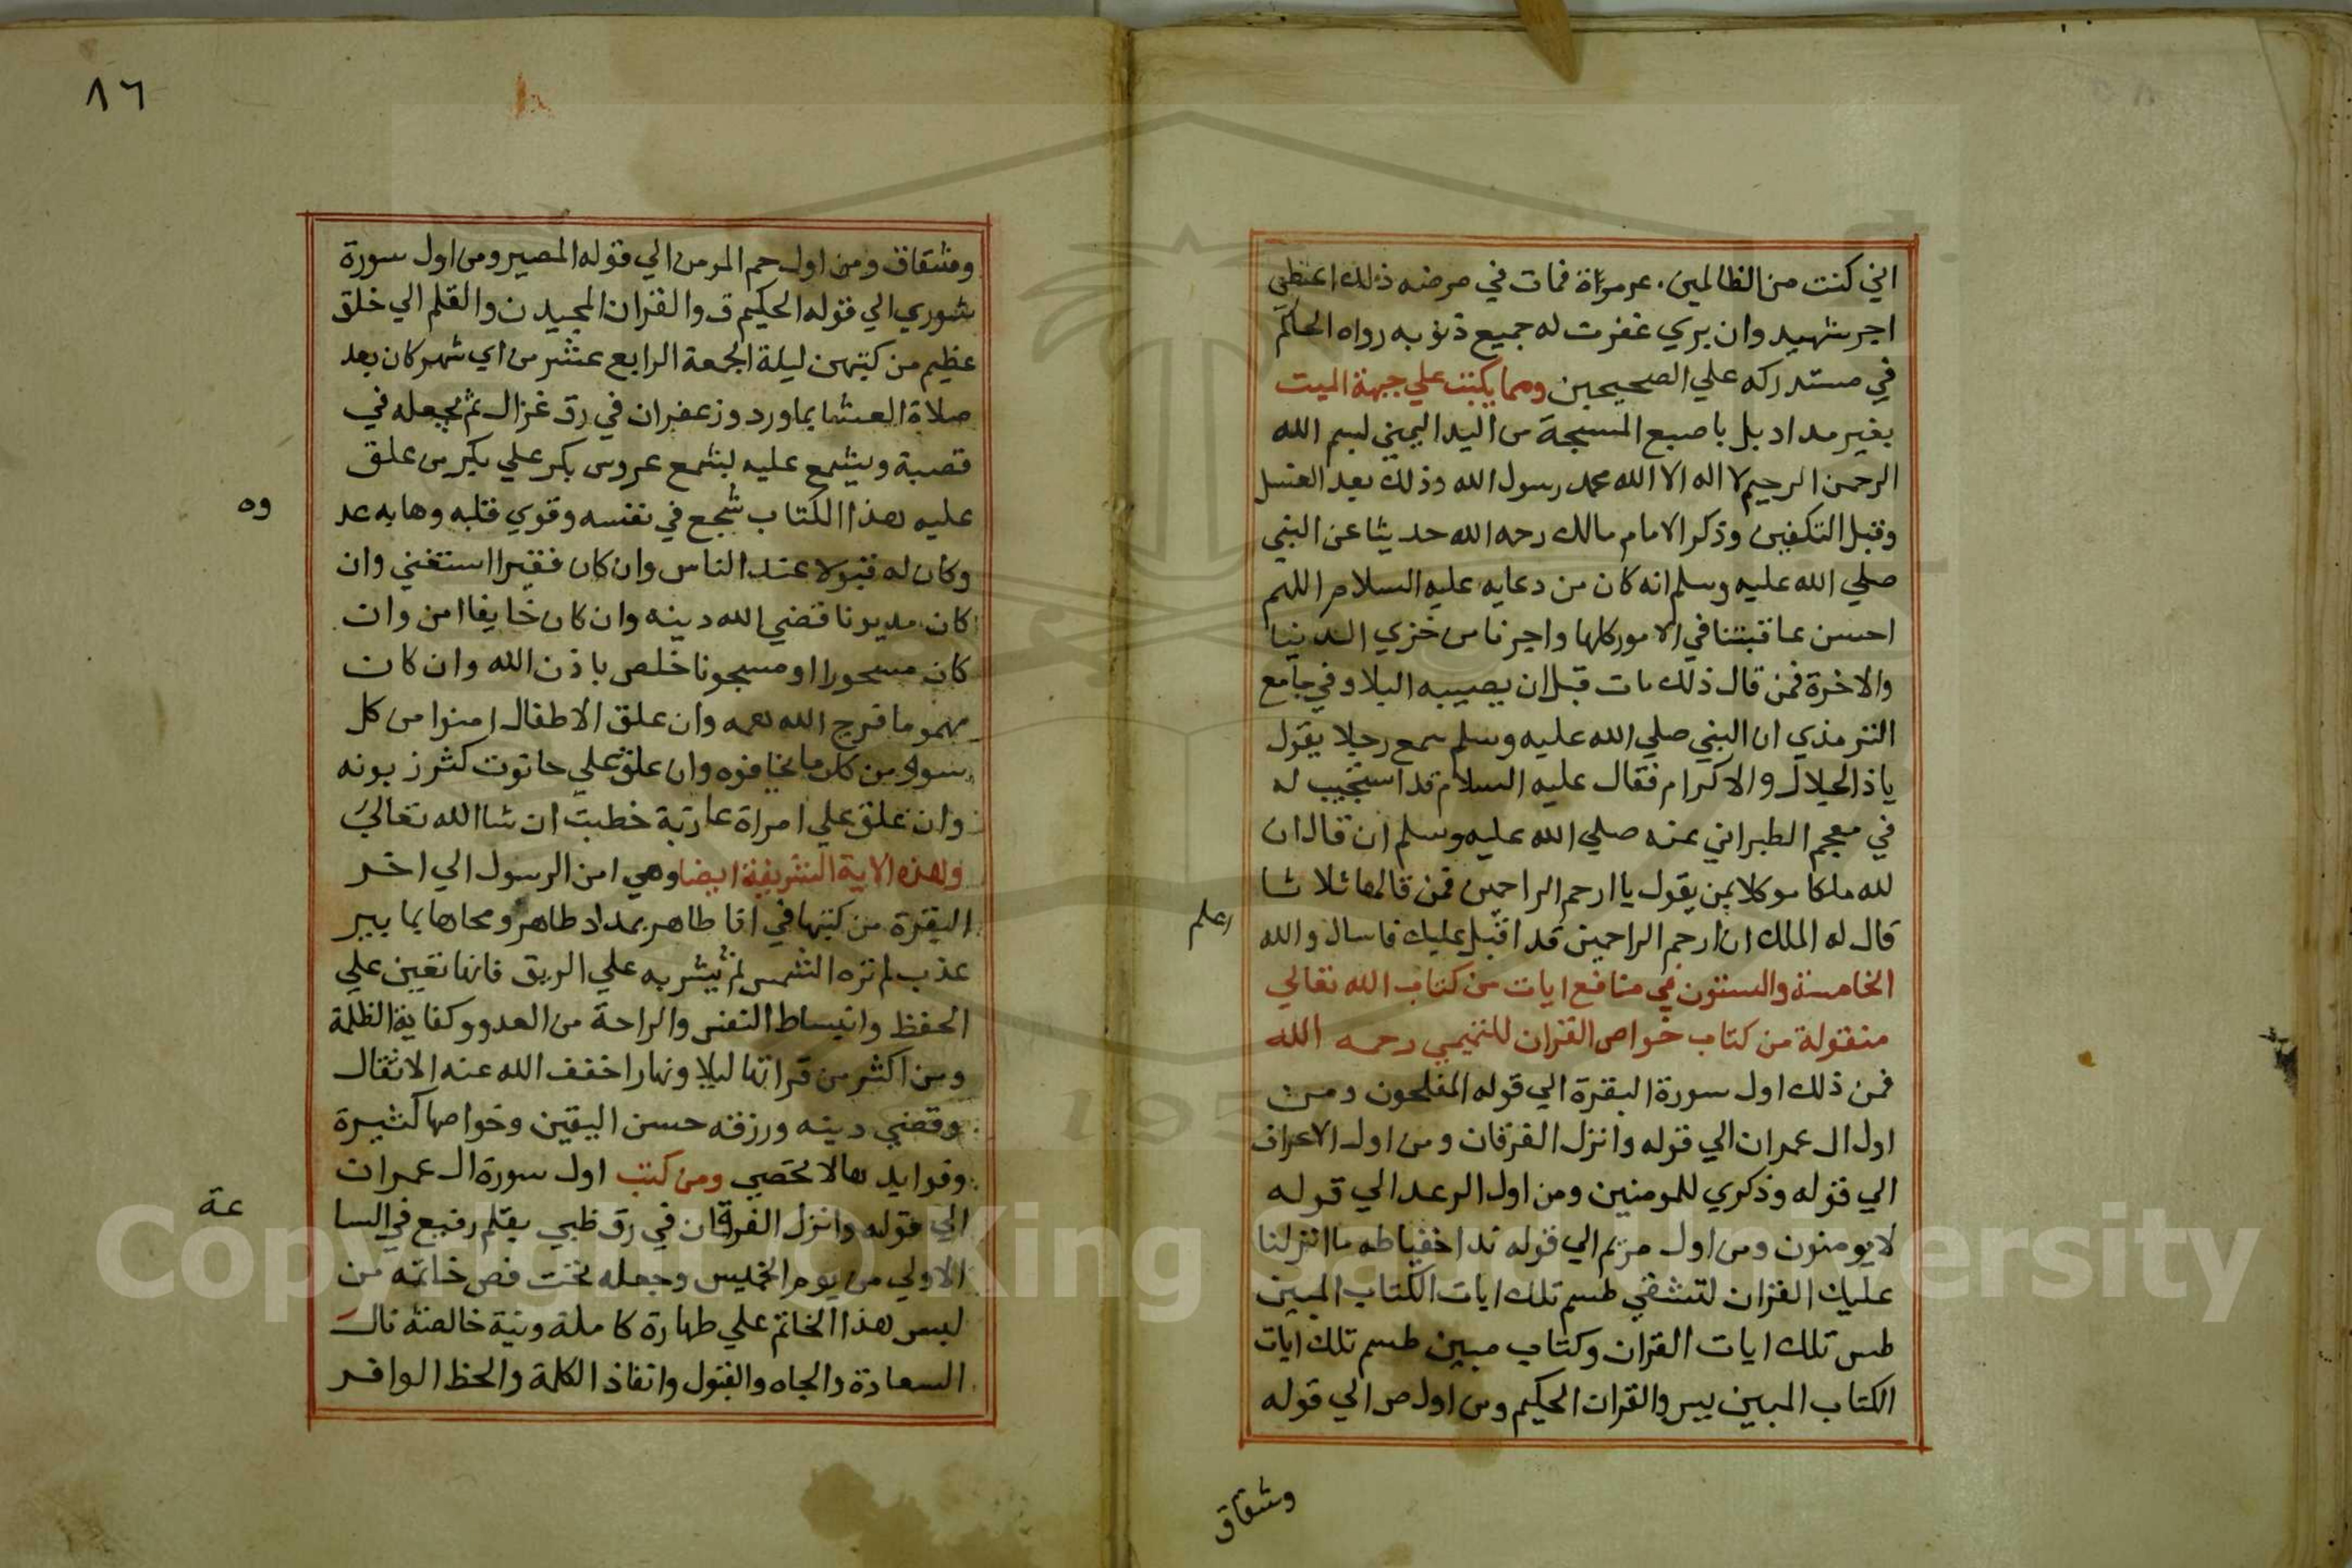 اني كنت من الظالمين. عر مرآة فمات في مرضه ذلك اعطي
اجر شهيد وان بري غفرت له جميع ذنوبه رواه الحاكم
في مستدركه علي الصحيحين ومما يكتب علي جبهة الميت
بغير مداد بل باصبع المسبحة من اليد اليميني بسم الله
الرحمن الرحيم لا اله الا الله محمد رسول الله وذلك بعد الغسل
وقبل التكفين وذكر الامام مالك رحمه الله حديثا عن النبي
صلي الله عليه وسلم انه كان من دعايه عليه السلام اللهم
احسن عاقبتنا في الامور كلها واجرنا من خزي الدنيا
والاخرة فمن قال ذلك مات قبل ان يصيبه البلا وفي جامع
الترمذي ان النبي صلي الله عليه وسلم سمع رجلا يقول
ياذا الجلال والاكرام فقال عليه السلام قد استجيب له
في معجم الطبراني عنه صلي الله عليه وسلم ان قال ان
لله ملكا موكلا بمن يقول يا ارحم الراحمين فمن قالها ثلاثا
قال له الملك ان ارحم الراحمين قد اقبل عليك فاسال والله
اعلم
الخامسة والستون في منافع ايات من كتاب الله تعالي
منقولة من كتاب خواص القران للتميمي رحمه الله
فمن ذلك اول سورة البقرة الي قوله المفلحون ومن
اول ال عمران الي قوله وانزل الفرقان ومن اول الاعراف
الي قوله وذكري للمومنين ومن اول الرعد الي قوله
لا يومنون ومن اول مريم الي قوله ندا خفيا طه ما انزلنا
عليك القران لتشقي طسم تلك ايات الكتاب المبين
طس تلك ايات القران وكتاب مبين طسم تلك ايات
الكتاب المبين يس والقران الحكيم ومن اول ص الي قوله
وشقاق
٨٦
وشقاق ومن اول حم المومن الي قوله المصير ومن اول سورة
شوري الي قوله الحكيم ق والقران المجيد ن والقلم الي خلق
عظيم من كتبهن ليلة الجمعة الرابع عشر من اي شهر كان بعد
صلاة العشا بماورد وزعفران في رق غزال ثم يجعله في
قصبة ويشمع عليه بشمع عروس بكر علي بكر من علق
عليه هذا الكتاب شجع في نفسه وقوي قلبه وهابه عد
وه
وكان له قبولا عند الناس وان كان فقيرا استغني وان
كان مديونا قضي الله دينه وان كان خايفا امن وان
كان مسحورا او مسجونا خلص باذن الله وان كان
مهموما فرج الله همه وان علق الاطفال امنوا من كل
سوء من كل ما يخافوه وان علق علي حانوت كثر زبونه
وان علق علي امراة عازبة خطبت ان شا الله تعالي
ولهذه الاية الشريفة ايضا وهي امن الرسول الي اخر
البقرة من كتبها في انا طاهر بمداد طاهر ومحاها بما بير
عذب لم تره الشمس ثم يشربه علي الريق فانها تعين علي
الحفظ وانبساط النفس والراحة من العدو وكفاية الظلمة
ومن اكثر من قراتها ليلا ونهارا خفف الله عنه الاثقال
وقضي دينه ورزقه حسن اليقين وخواصها كثيرة
وفوايدها لا تحصي ومن كتب اول سورة ال عمران
الي قوله وانزل الفرقان في رق ظبي بقلم رفيع في السا
عة
الاولي من يوم الخميس وجعله تحت فص خاتمه من
لبس هذا الخاتم علي طهارة كاملة ونية خالصة نال
السعادة والجاه والقبول وانفاذ الكلمة والحظ الوافر
Copyright © King Saud University